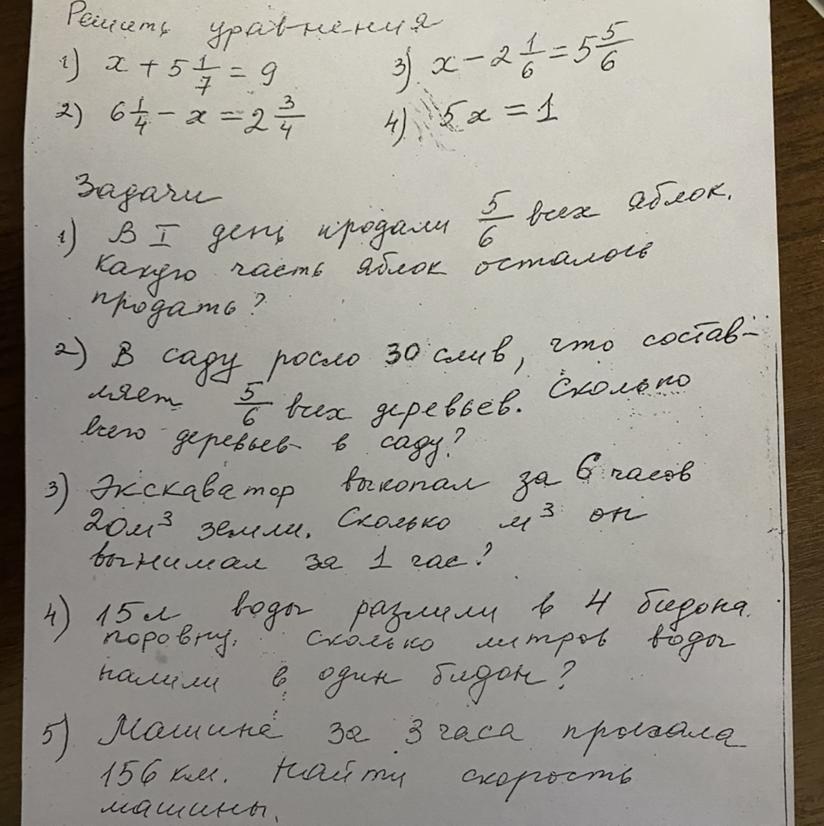 Решить уравнения
1) x + 5 1/7 = 9
3) x − 2 1/6 = 5 5/6
2) 6 1/4 − x = 2 3/4
4) 5x = 1
Задачи
1) В I день продали 5/6 всех яблок.
какую часть яблок осталось
продать?
2) В саду росло 30 слив, что состав-
ляет 5/6 всех деревьев. Сколько
всего деревьев в саду?
3) Экскаватор выкопал за 6 часов
20 м³ земли. Сколько м³ он
вынимал за 1 час?
4) 15 л воды разлили в 4 бидона
поровну. Сколько литров воды
налили в один бидон?
5) Машина за 3 часа проехала
156 км. Найти скорость
машины.